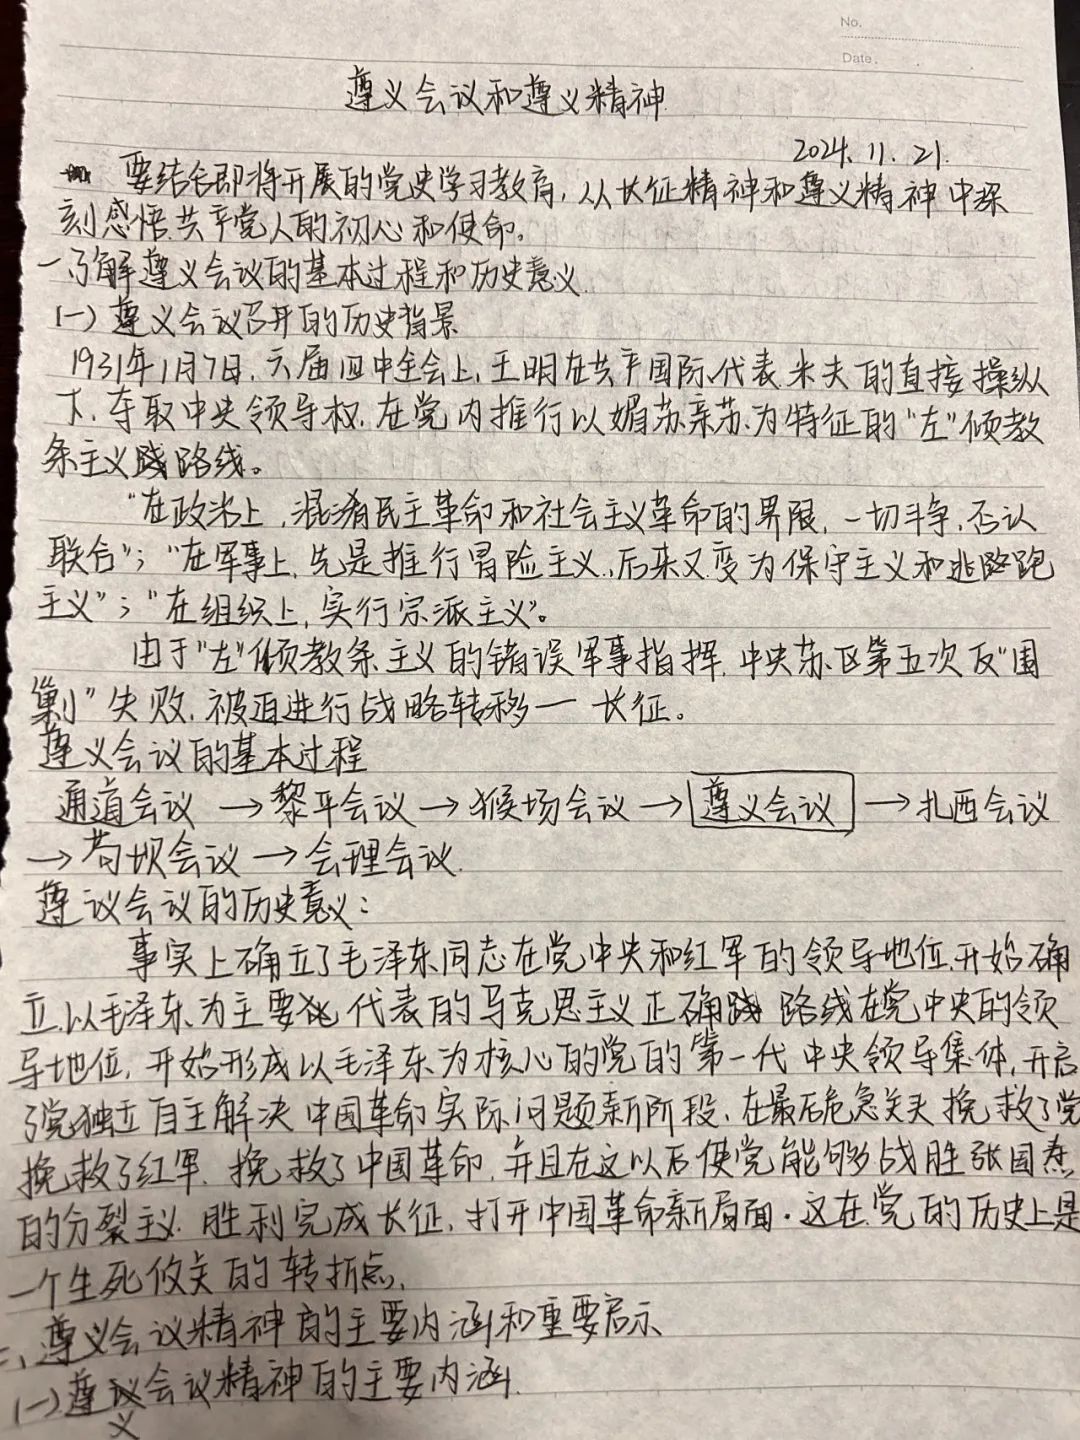 No.
Date.
遵义会议和遵义精神
2024.11.21.
要结合即将开展的党史学习教育，从长征精神和遵义精神中深
刻感悟共产党人的初心和使命。
一、了解遵义会议的基本过程和历史意义
(一)遵义会议召开的历史背景
1931年1月7日，六届四中全会上，王明在共产国际代表米夫的直接操纵
下，夺取中央领导权，在党内推行以媚苏亲苏为特征的“左”倾教
条主义路线。
“在政治上，混淆民主革命和社会主义革命的界限，一切斗争，否认
联合”；“在军事上，先是推行冒险主义，后来又变为保守主义和逃跑
主义”；“在组织上，实行宗派主义”。
由于“左”倾教条主义的错误军事指挥，中央苏区第五次反“围
剿”失败，被迫进行战略转移—长征。
遵义会议的基本过程
通道会议→黎平会议→猴场会议→遵义会议→扎西会议
→苟坝会议→会理会议
遵议会议的历史意义：
事实上确立了毛泽东同志在党中央和红军的领导地位，开始确
立以毛泽东为主要代表的马克思主义正确路线在党中央的领
导地位，开始形成以毛泽东为核心的党的第一代中央领导集体，开启
了党独立自主解决中国革命实际问题新阶段，在最后危急关头挽救了党
挽救了红军，挽救了中国革命，并且在这以后使党能够战胜张国焘
的分裂主义，胜利完成长征，打开中国革命新局面。这在党的历史上是
一个生死攸关的转折点。
二、遵义会议精神的主要内涵和重要启示
(一)遵义会议精神的主要内涵